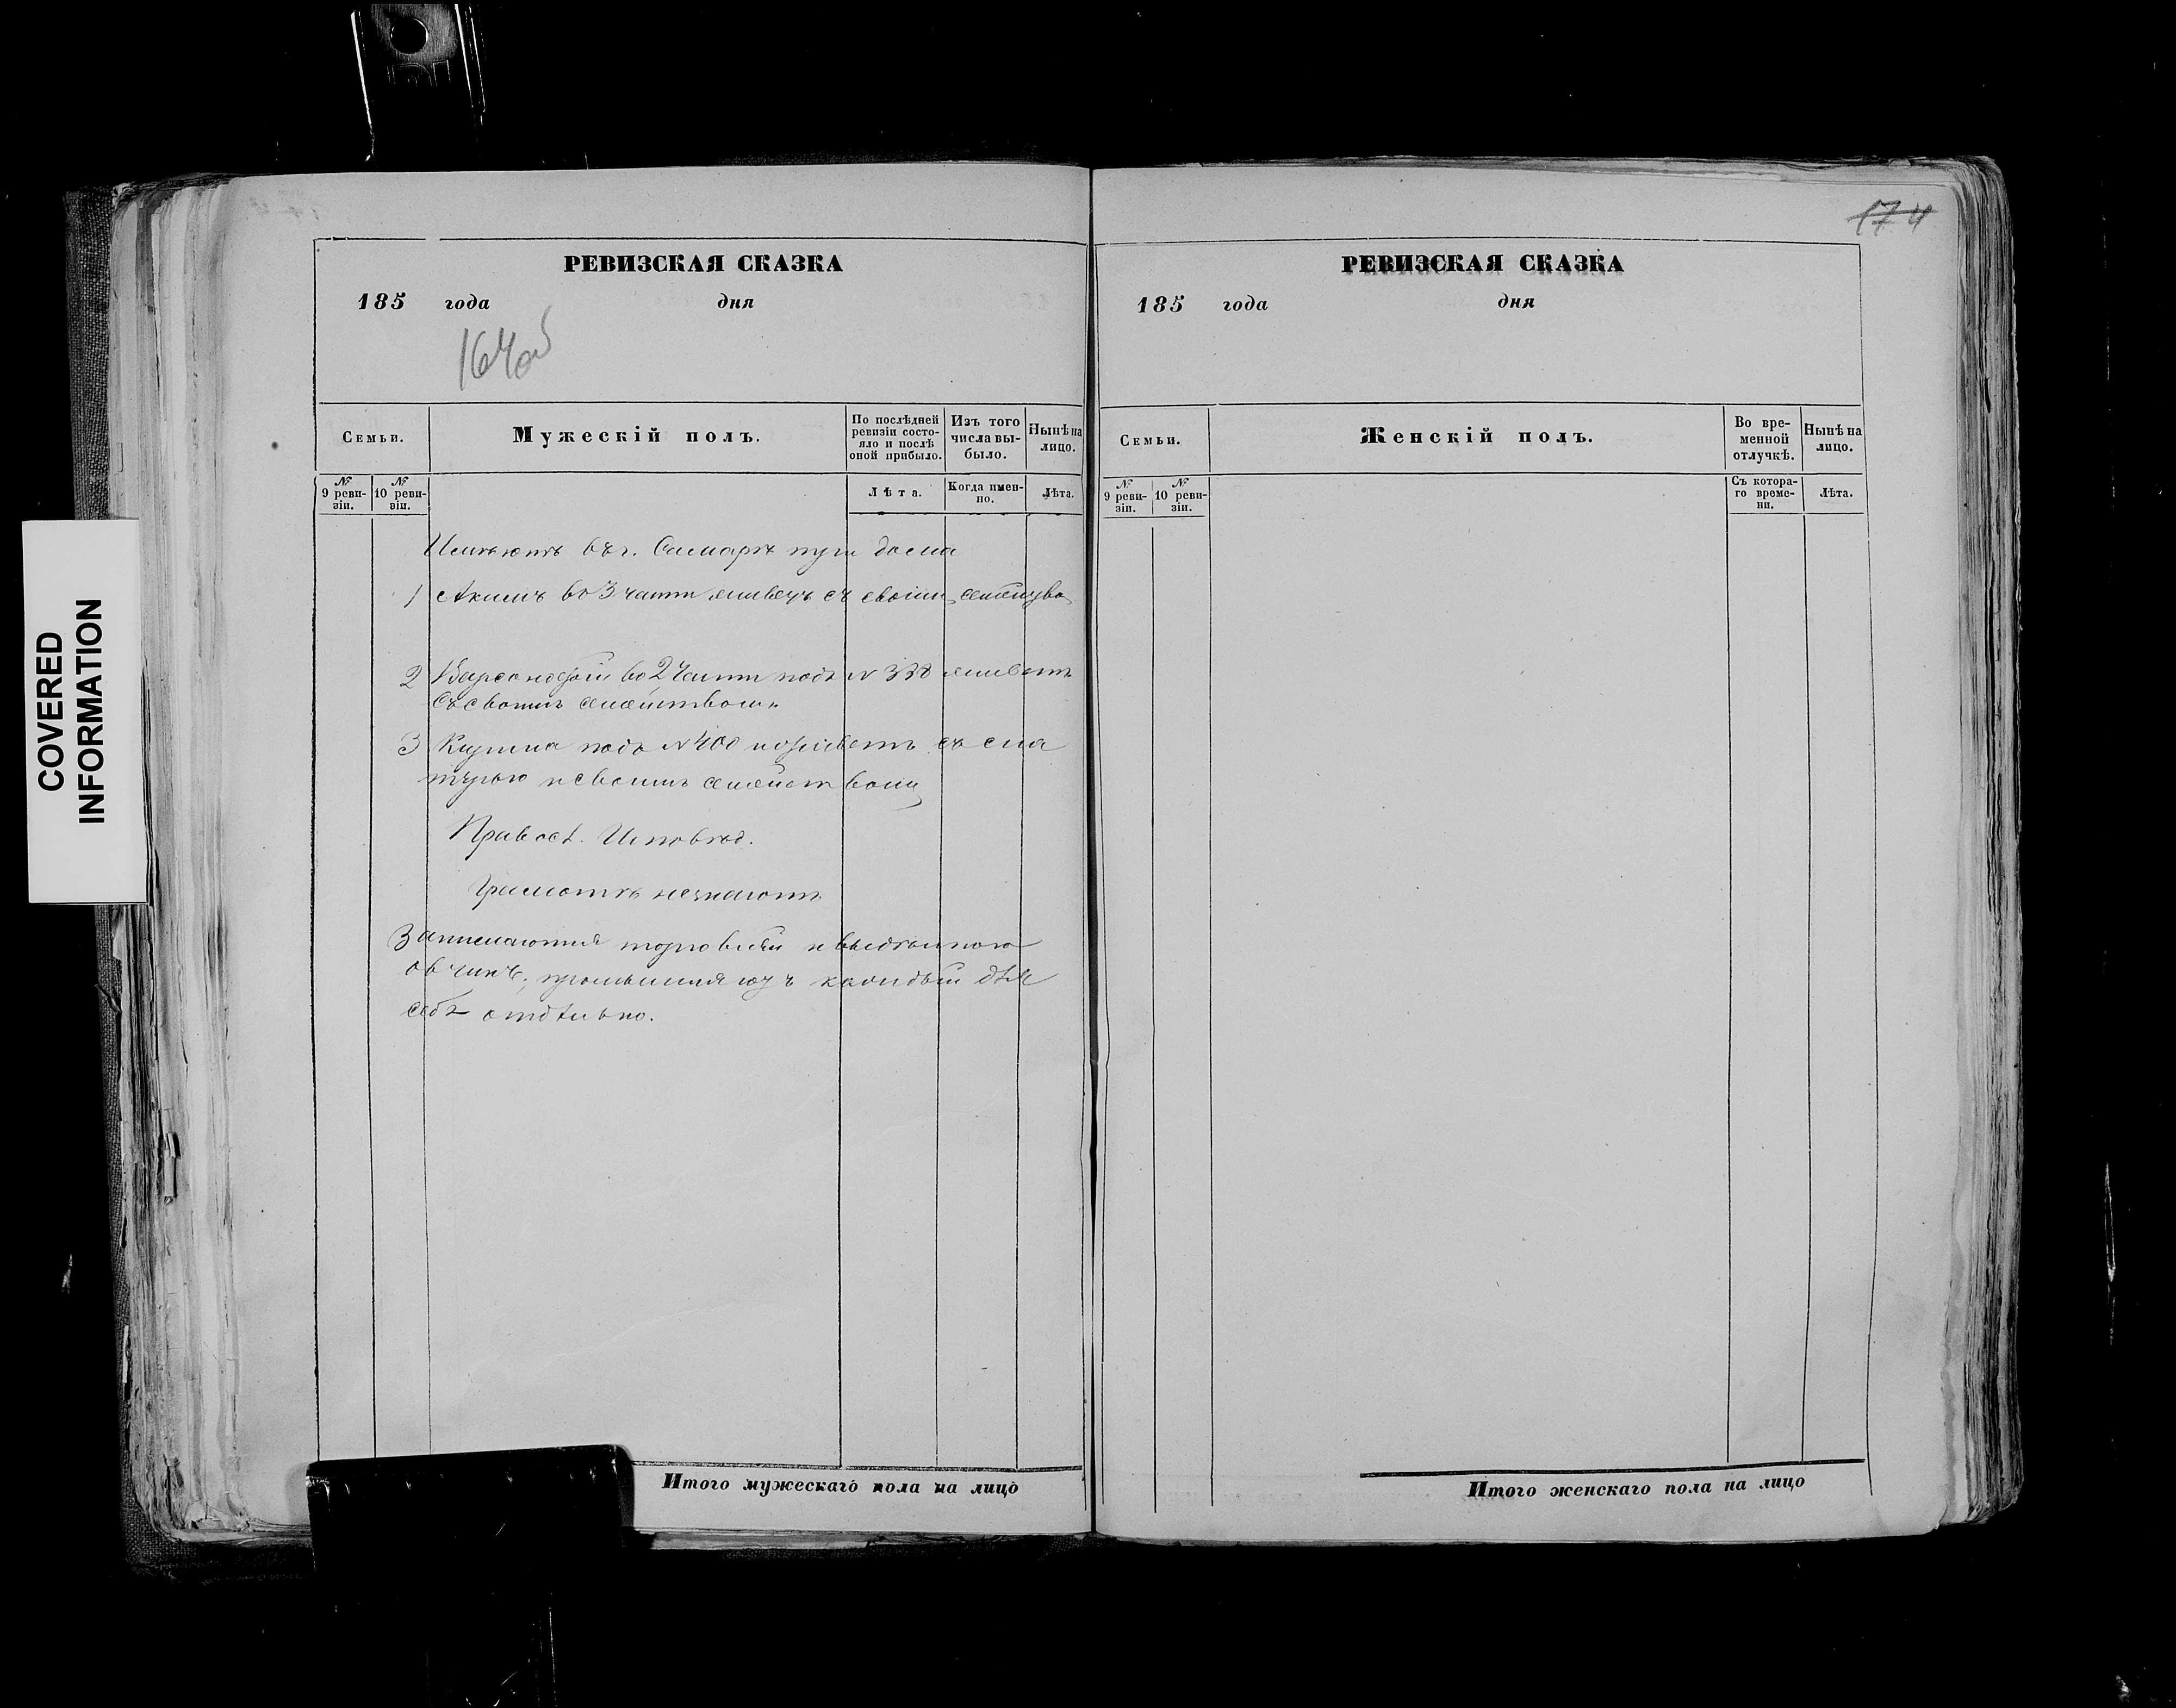 COVERED
INFORMATION
РЕВИЗСКАЯ СКАЗКА
185 года дня
164об
Семьи.
Мужескій полъ.
По послѣдней ревизіи состо-
яло и послѣ оной прибыло.
Изъ того числа вы-
было.
Нынѣ на лицо.
№ 9 реви-
зіи.
№ 10 реви-
зіи.
Лѣта.
Когда имен-
но.
Лѣта.
Имѣютъ въ г. Самарѣ дома
1 Акимъ во 3 части живетъ съ своим
2 Варсонофий во 2 части подъ № 338 живетъ
съ своимъ семействомъ
3 Кузьма подъ № 400 и живетъ съ ма
терью и своимъ семействомъ
Правосл. Исповѣд.
Грамотѣ незнаютъ
Занимаются торговлей и выдѣлкою
овчинъ, каждый для
себѣ отдѣльно.
Итого мужескаго пола на лицо
174
РЕВИЗСКАЯ СКАЗКА
185 года дня
Семьи.
Женскій полъ.
Во вре-
менной
отлучкѣ.
Нынѣ на
лицо.
№ 9 реви-
зіи.
№ 10 реви-
зіи.
Съ котора-
го време-
ни.
Лѣта.
Итого женскаго пола на лицо